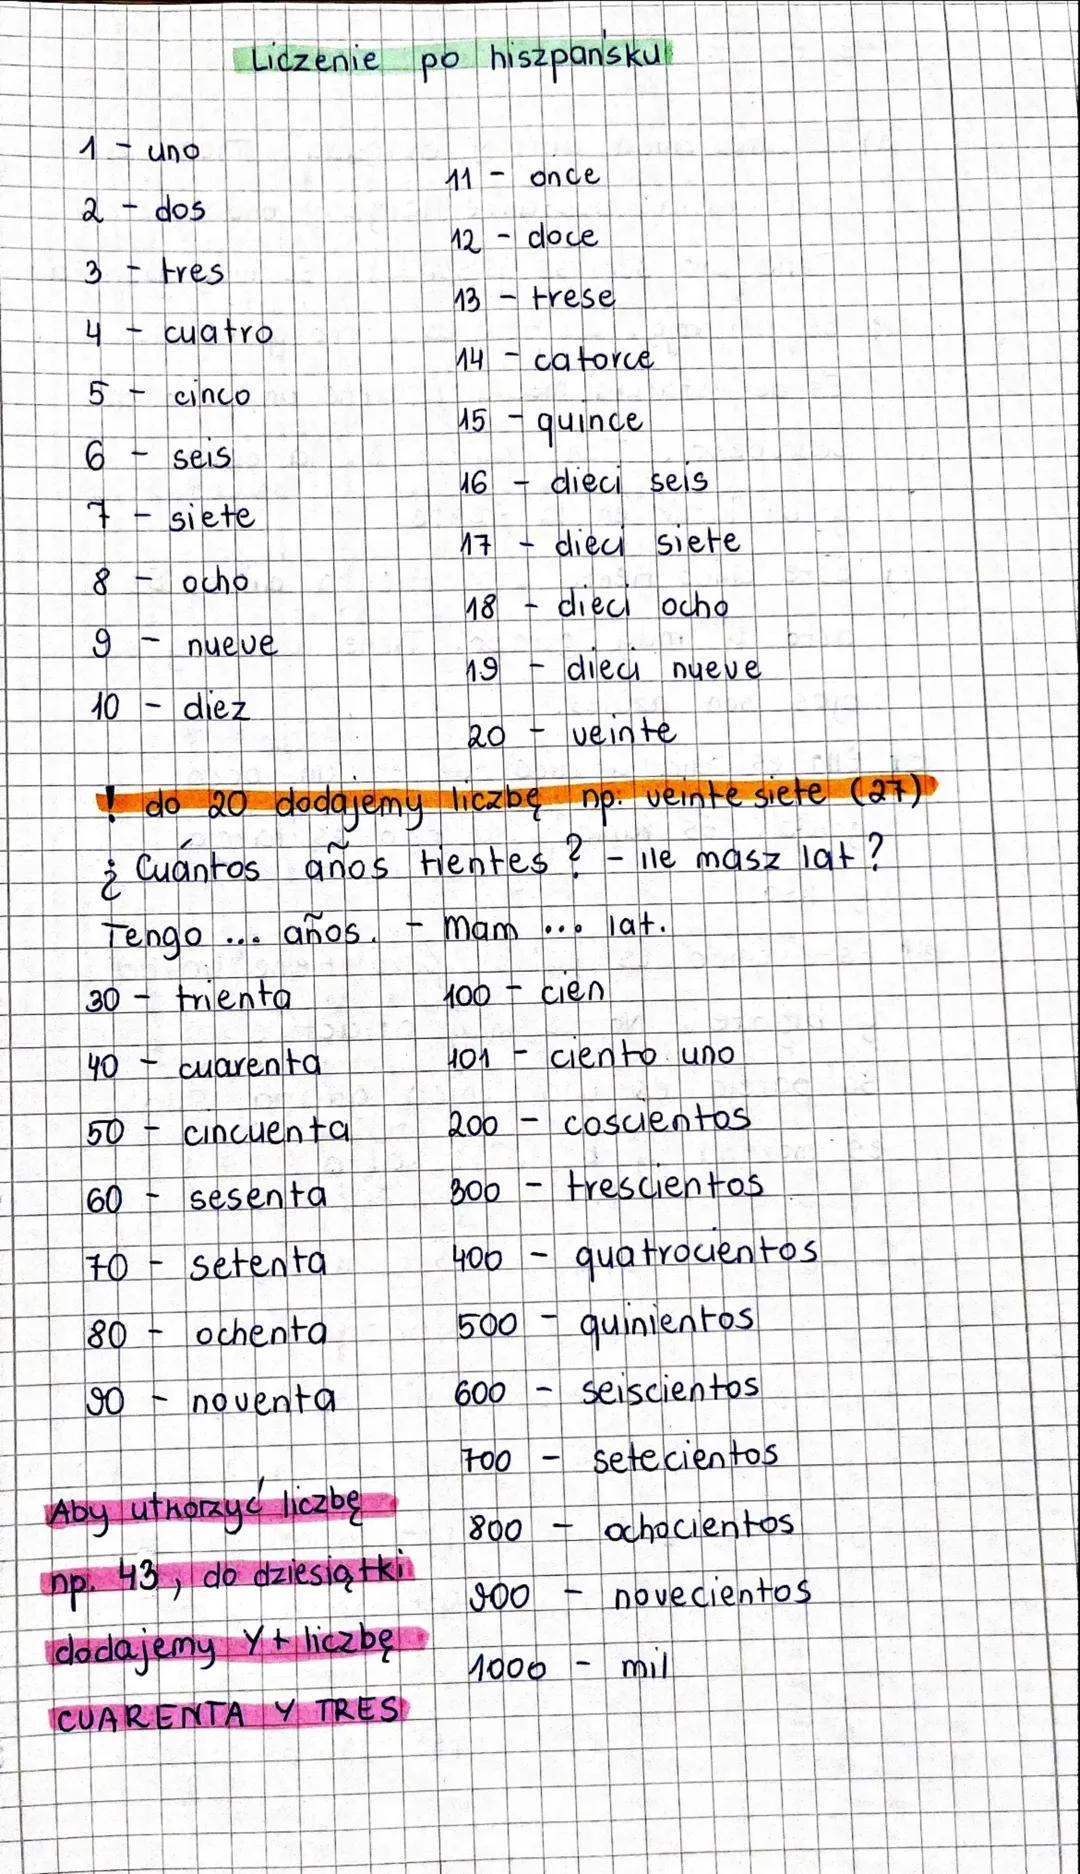 Liczenie po hiszpańsku
1 - uno
2 - dos
3 - tres
4 - cuatro
5 - cinco
6 - seis
7 - siete
8 - ocho
9 - nueve
10 - diez
11 - once
12 - doce
13 - trese
14 - catorce
15 - quince
16 - dieci seis
17 - dieci siete
18 - dieci ocho
19 - dieci nueve
20 - veinte
! do 20 dodajemy liczbę np. veinte siete (27)
¿ Cuántos años tientes ? - ile masz lat ?
Tengo ... años. - mam ... lat.
30 - trienta
40 - cuarenta
50 - cincuenta
60 - sesenta
70 - setenta
80 - ochenta
90 - noventa
Aby utworzyć liczbę
np. 43, do dziesiątki
dodajemy Y + liczbę
CUARENTA Y TRES
100 - cien
101 - ciento uno
200 - coscientos
300 - trescientos
400 - quatrocientos
500 - quinientos
600 - seiscientos
700 - setecientos
800 - ochocientos
900 - novecientos
1000 - mil